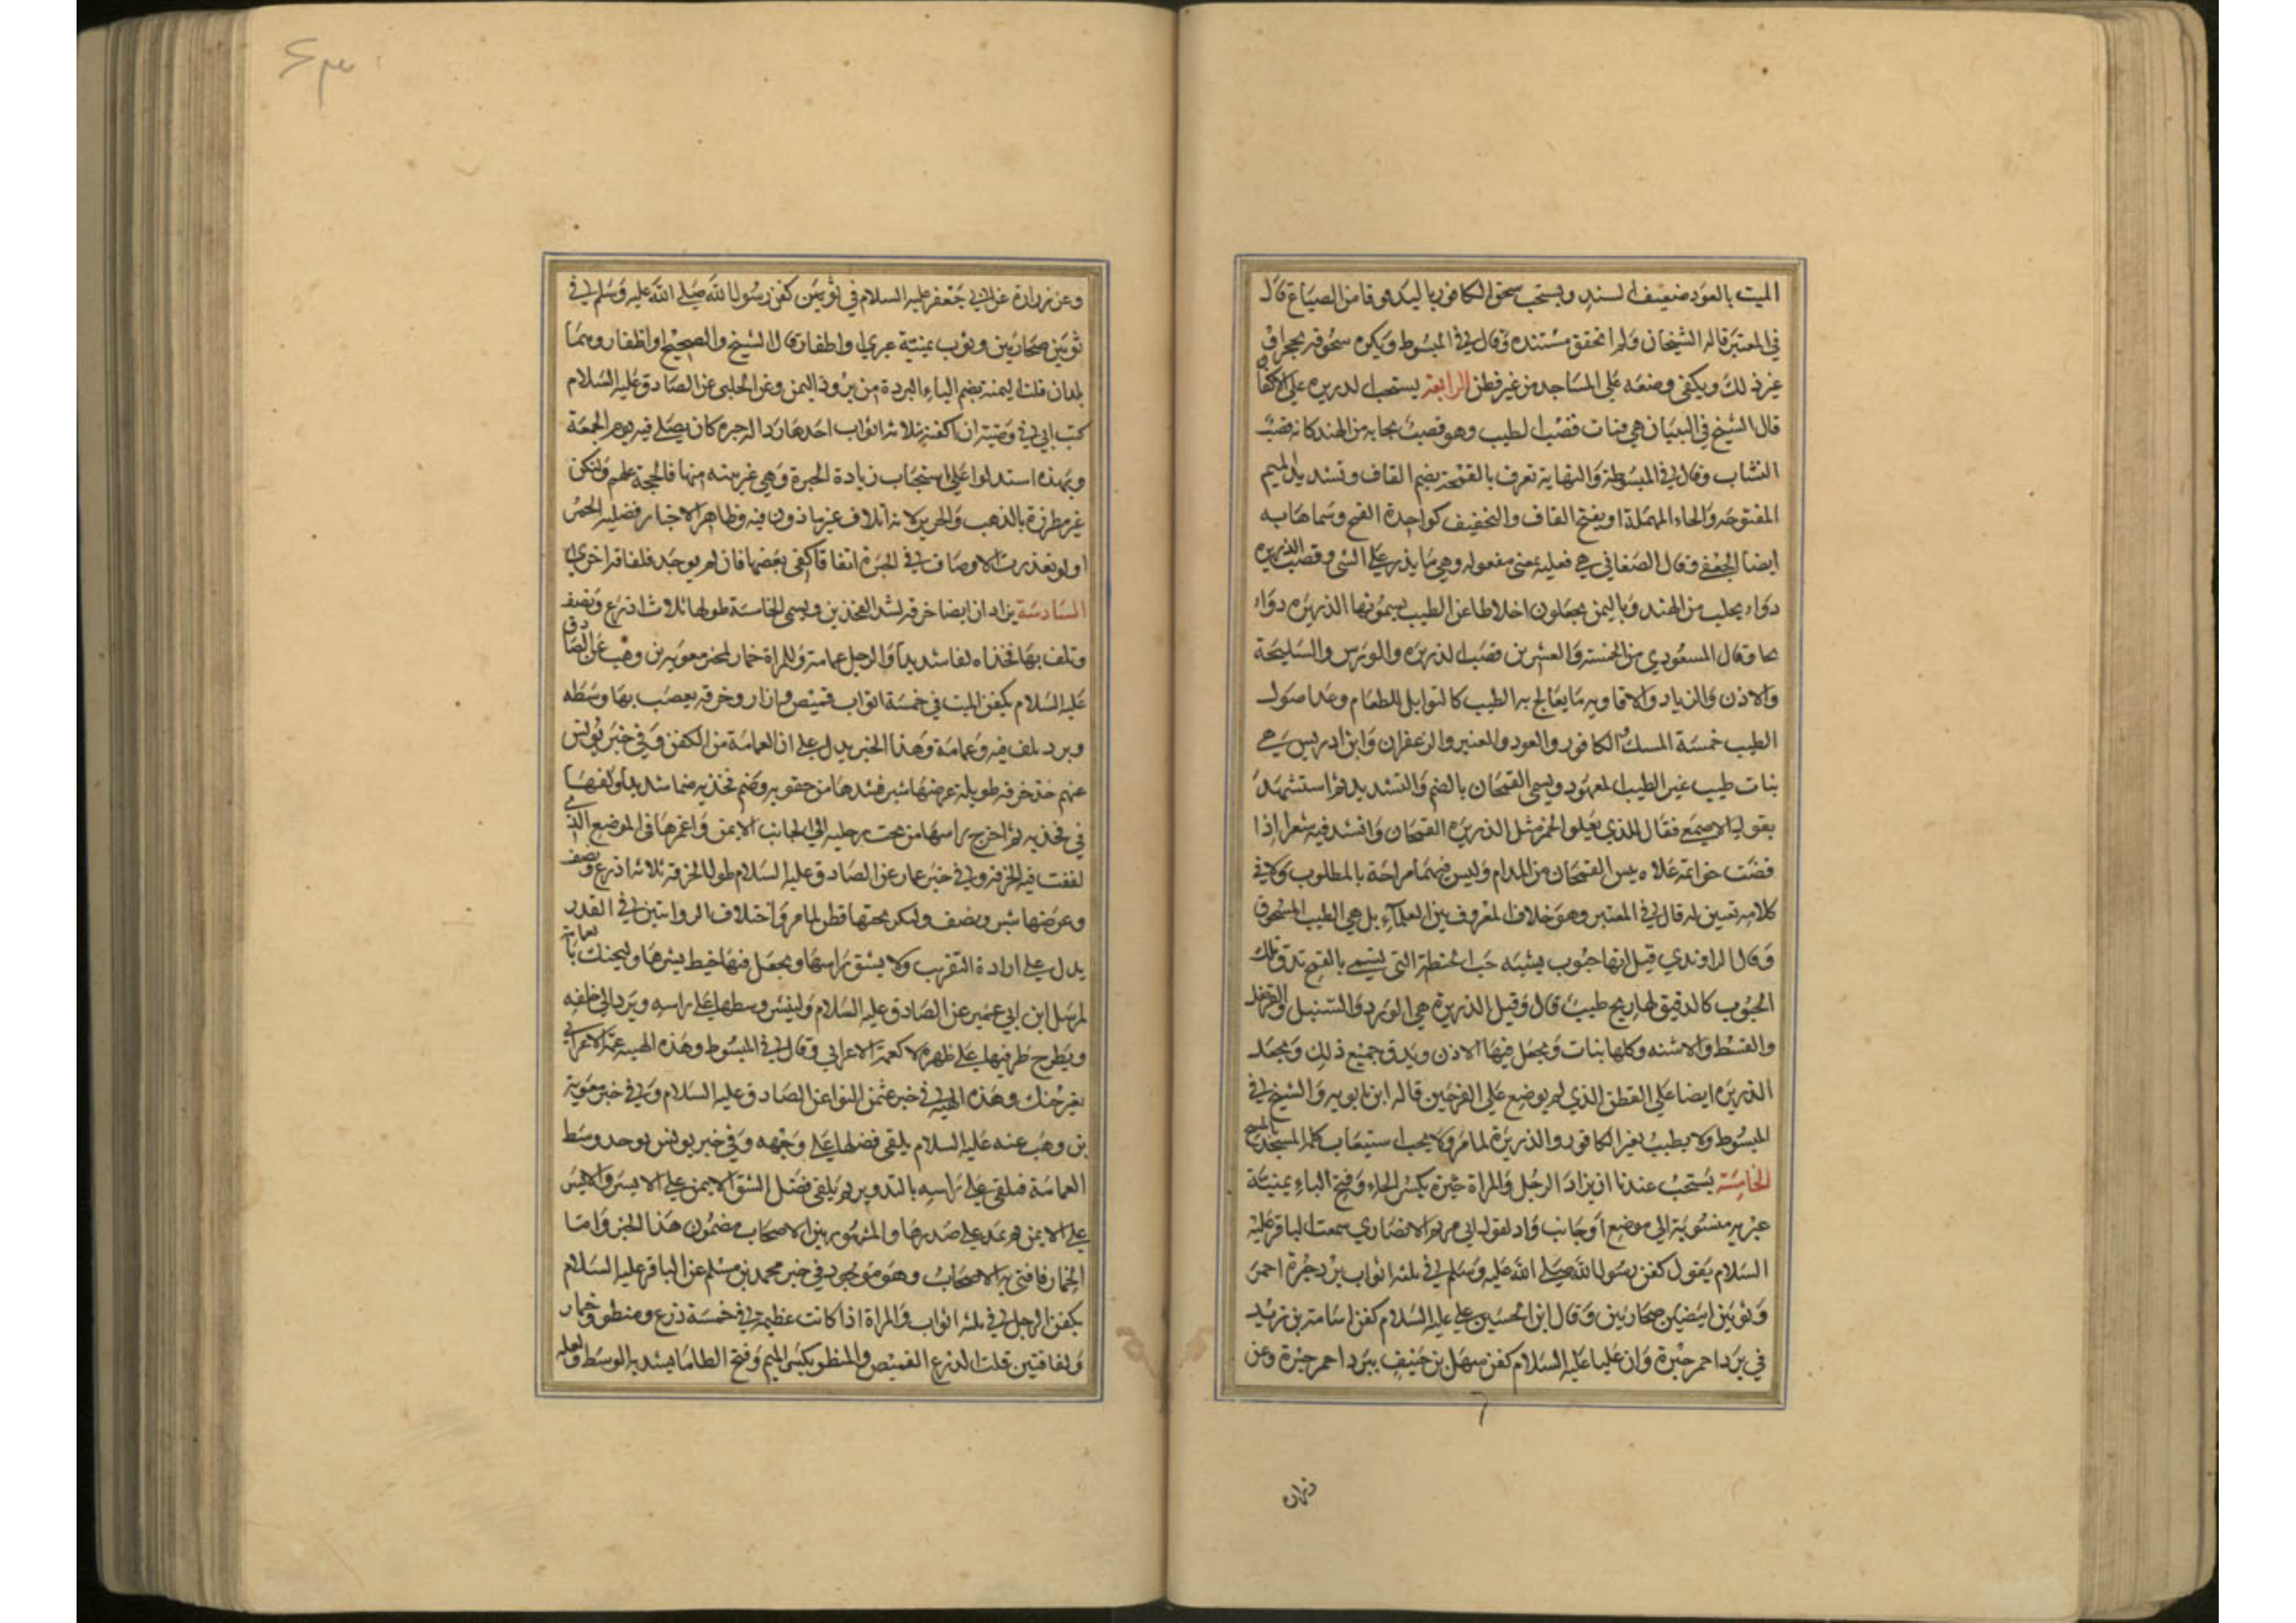 الميت بالعود ضعيف السند ويستحب سحق الكافور باليد خوفا من الضياع قال
في المعتبر قاله الشيخان ولم اتحقق مستنده وقال في المبسوط ويكره سحقه بحجر او
غير ذلك ويكفي وضعه على المساجد من غير قطن الرابعة يستحب الذريرة على الاكفان
قال الشيخ في التبيان هي فتات قصب الطيب وهو قصب يجابه من الهند كانه قصب
النشاب وقال في المبسوط والنهاية تعرف بالقمحة بضم القاف وتشديد الميم
المفتوحة والحاء المهملة او بفتح القاف والتخفيف كواحدة القمح وسماها به
ايضا الجعفي وقال الصغاني هي فعيلة بمعنى مفعولة وهي ما يذر على الشي وقصب الذريرة
دواء يجلب من الهند وباليمن يجعلون اخلاطا من الطيب يسمونها الذريرة دواء
وقال المسعودي من الخمسة والعشرين قصب الذريرة والورس والسليخة
والاذن والزباد والافاويه ما يعالج به الطيب كالتوابل للطعام وعد اصول
الطيب خمسة المسك الكافور والعود والعنبر والزعفران وابن ادريس هي
نبات طيب غير الطيب المعهود ويسمى القمحان بالضم والتشديد ثم استشهد
بقول الاصمعي فقال الذي يعلو الخمر مثل الذريرة القمحان وانشد فيه شعرا اذا
فضت خواتمه علاه يبيس القمحان من المدام وليس فيهما صراحة بالمطلوب ولا في
كلامه تعيين له قال في المعتبر وهو خلاف المعروف بين العلماء بل هي الطيب المسحوق
وقال الراوندي قيل انها حبوب يشبه حب الحنطة التي يسمى بالقمح تدق تلك
الحبوب كالدقيق لها ريح طيب قال وقيل الذريرة هي الورد والسنبل والقرنفل
والقسط والاشنه وكلها نبات ويجعل فيها اللاذن ويدق جميع ذلك ويجعل
الذريرة ايضا على القطن الذي لم يوضع على الفرجين قاله ابن بابويه والشيخ في
المبسوط ولا يطيب بغير الكافور والذريرة لما مر ولا يجب استيعاب كل المسجد بالمسح
الخامسة يستحب عندنا ان يزاد الرجل والمراة حبرة بكسر الحاء وفتح الباء يمنية
عبرية منسوبة الى موضع او جانب واد لقول ابي مريم الانصاري سمعت الباقر عليه
السلام يقول كفن رسول الله صلى الله عليه وسلم في ثلثه اثواب برد حبرة احمر
وثوبين ابيضين صحاريين وقال ابن الحسين بن علي عليه السلام كفن اسامة بن زيد
في برد احمر حبرة وان عليا عليه السلام كفن سهل بن حنيف ببرد احمر حبرة وعن
وعن زرارة عن ابي جعفر عليه السلام في ثوبين كفن رسول الله صلى الله عليه وسلم في
ثوبين صحاريين وثوب يمنية عبري او اظفار قال الشيخ والصحيح او ظفار وهما
بلدان قلت اليمنة بضم الياء البردة من برود اليمن وعن الحلبي عن الصادق عليه السلام
كتب ابي في وصيته ان اكفنه بثلاثه اثواب احدها رداء له حبره كان يصلي فيه يوم الجمعة
وبهذه استدلوا على استحباب زيادة الحبرة وهي غير بينه منها فالحجة عليهم ولتكن
غير مطرزة بالذهب والحرير لانه اتلاف غير ماذون فيه وظاهر الاخبار فضلية الحمر
ولو تعذرت الاوصاف في الحبرة اتفاقا كفى بعضها فان لم يوجد فلفافة اخرى
السادسة يزادان ايضا خرقه لشد الفخذين ويسمى الخامسة طولها ثلاث اذرع ونصف
وتلف بها فخذاه لفا شديدا والرجل عمامة وللمراة خمار لخبر معوية بن وهب عن الصادق
عليه السلام يكفن الميت في خمسة اثواب قميص وازار وخرقه يعصب بها وسطه
وبرد يلف فيه وعمامة وهذا الخبر يدل على ان العمامة من الكفن وفي خبر يونس
عنهم خذ خرقه طويلة عرضها شبر فشدها من حقويه وضم فخذيه ضما شديدا ولفها
في فخذيه ثم اخرج راسها من تحت رجليه الى الجانب الايمن واغمزها في الموضع الذي
لففت فيه الخرقه وفي خبر عمار عن الصادق عليه السلام طول الخرقة ثلاثه اذرع ونصف
وعرضها شبر ونصف وليكن تحتها قطن لما مر واختلاف الروايتين في القدر
يدل على ارادة التقريب ولا يشق راسها ويجعل فيها خيط يشدها وليحنك بالعمامة
لمرسل ابن ابي عمير عن الصادق عليه السلام ولينشر وسطها على راسه ويرد الى خلفه
ويطرح طرفيها على ظهره لا كعمة الاعرابي وقال في المبسوط وهذه الهيه عمة الاعرابي
بغير حنك وهذه الهيه في خبر عثمن النوا عن الصادق عليه السلام وفي خبر معوية
بن وهب عنه عليه السلام يلقى فضلها على وجهه وفي خبر يونس يوخد وسط
العمامة فيلقى على راسه بالتدوير ثم يلقى فضل الشق الايمن على الايسر والايسر
على الايمن ثم يمد على صدرها والمشهور بين الاصحاب مضمون هذا الخبر واما
الخمار فافتى به الاصحاب وهو موجود في خبر محمد بن مسلم عن الباقر عليه السلام
يكفن الرجل في ثلثه اثواب والمراة اذا كانت عظيمة في خمسة درع ومنطق وخمار
ولفافتين قلت الدرع القميص والمنطق بكسر الميم وفتح الطا ما يشد به الوسط ولعله